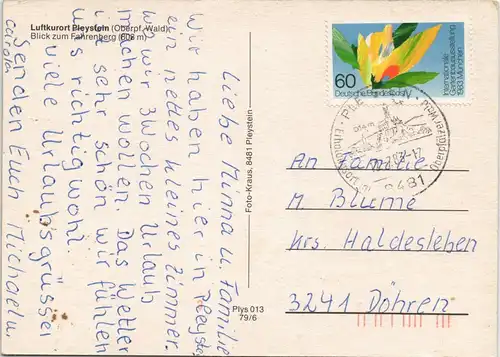 Luftkurort Pleystein (Oberpf. Wald)
Blick zum Fahrenberg (608 m)
Liebe Minna u. Familie
wir haben hier in Pleystein
ein nettes kleines Zimmer.
wo wir 3 wochen Urlaub
machen wollen. Das wetter
ist sehr schön wir fühlen
uns richtig wohl.
viele Urlaubsgrüsse
senden Euch Michaelu
carola
Foto-Kraus, 8481 Pleystein
Plys 013
79/6
60
Deutsche Bundespost
Internationale
Gartenbauausstellung
1983 München
8481
An Familie
M Blume
Krs. Haldesleben
3241 Döhren